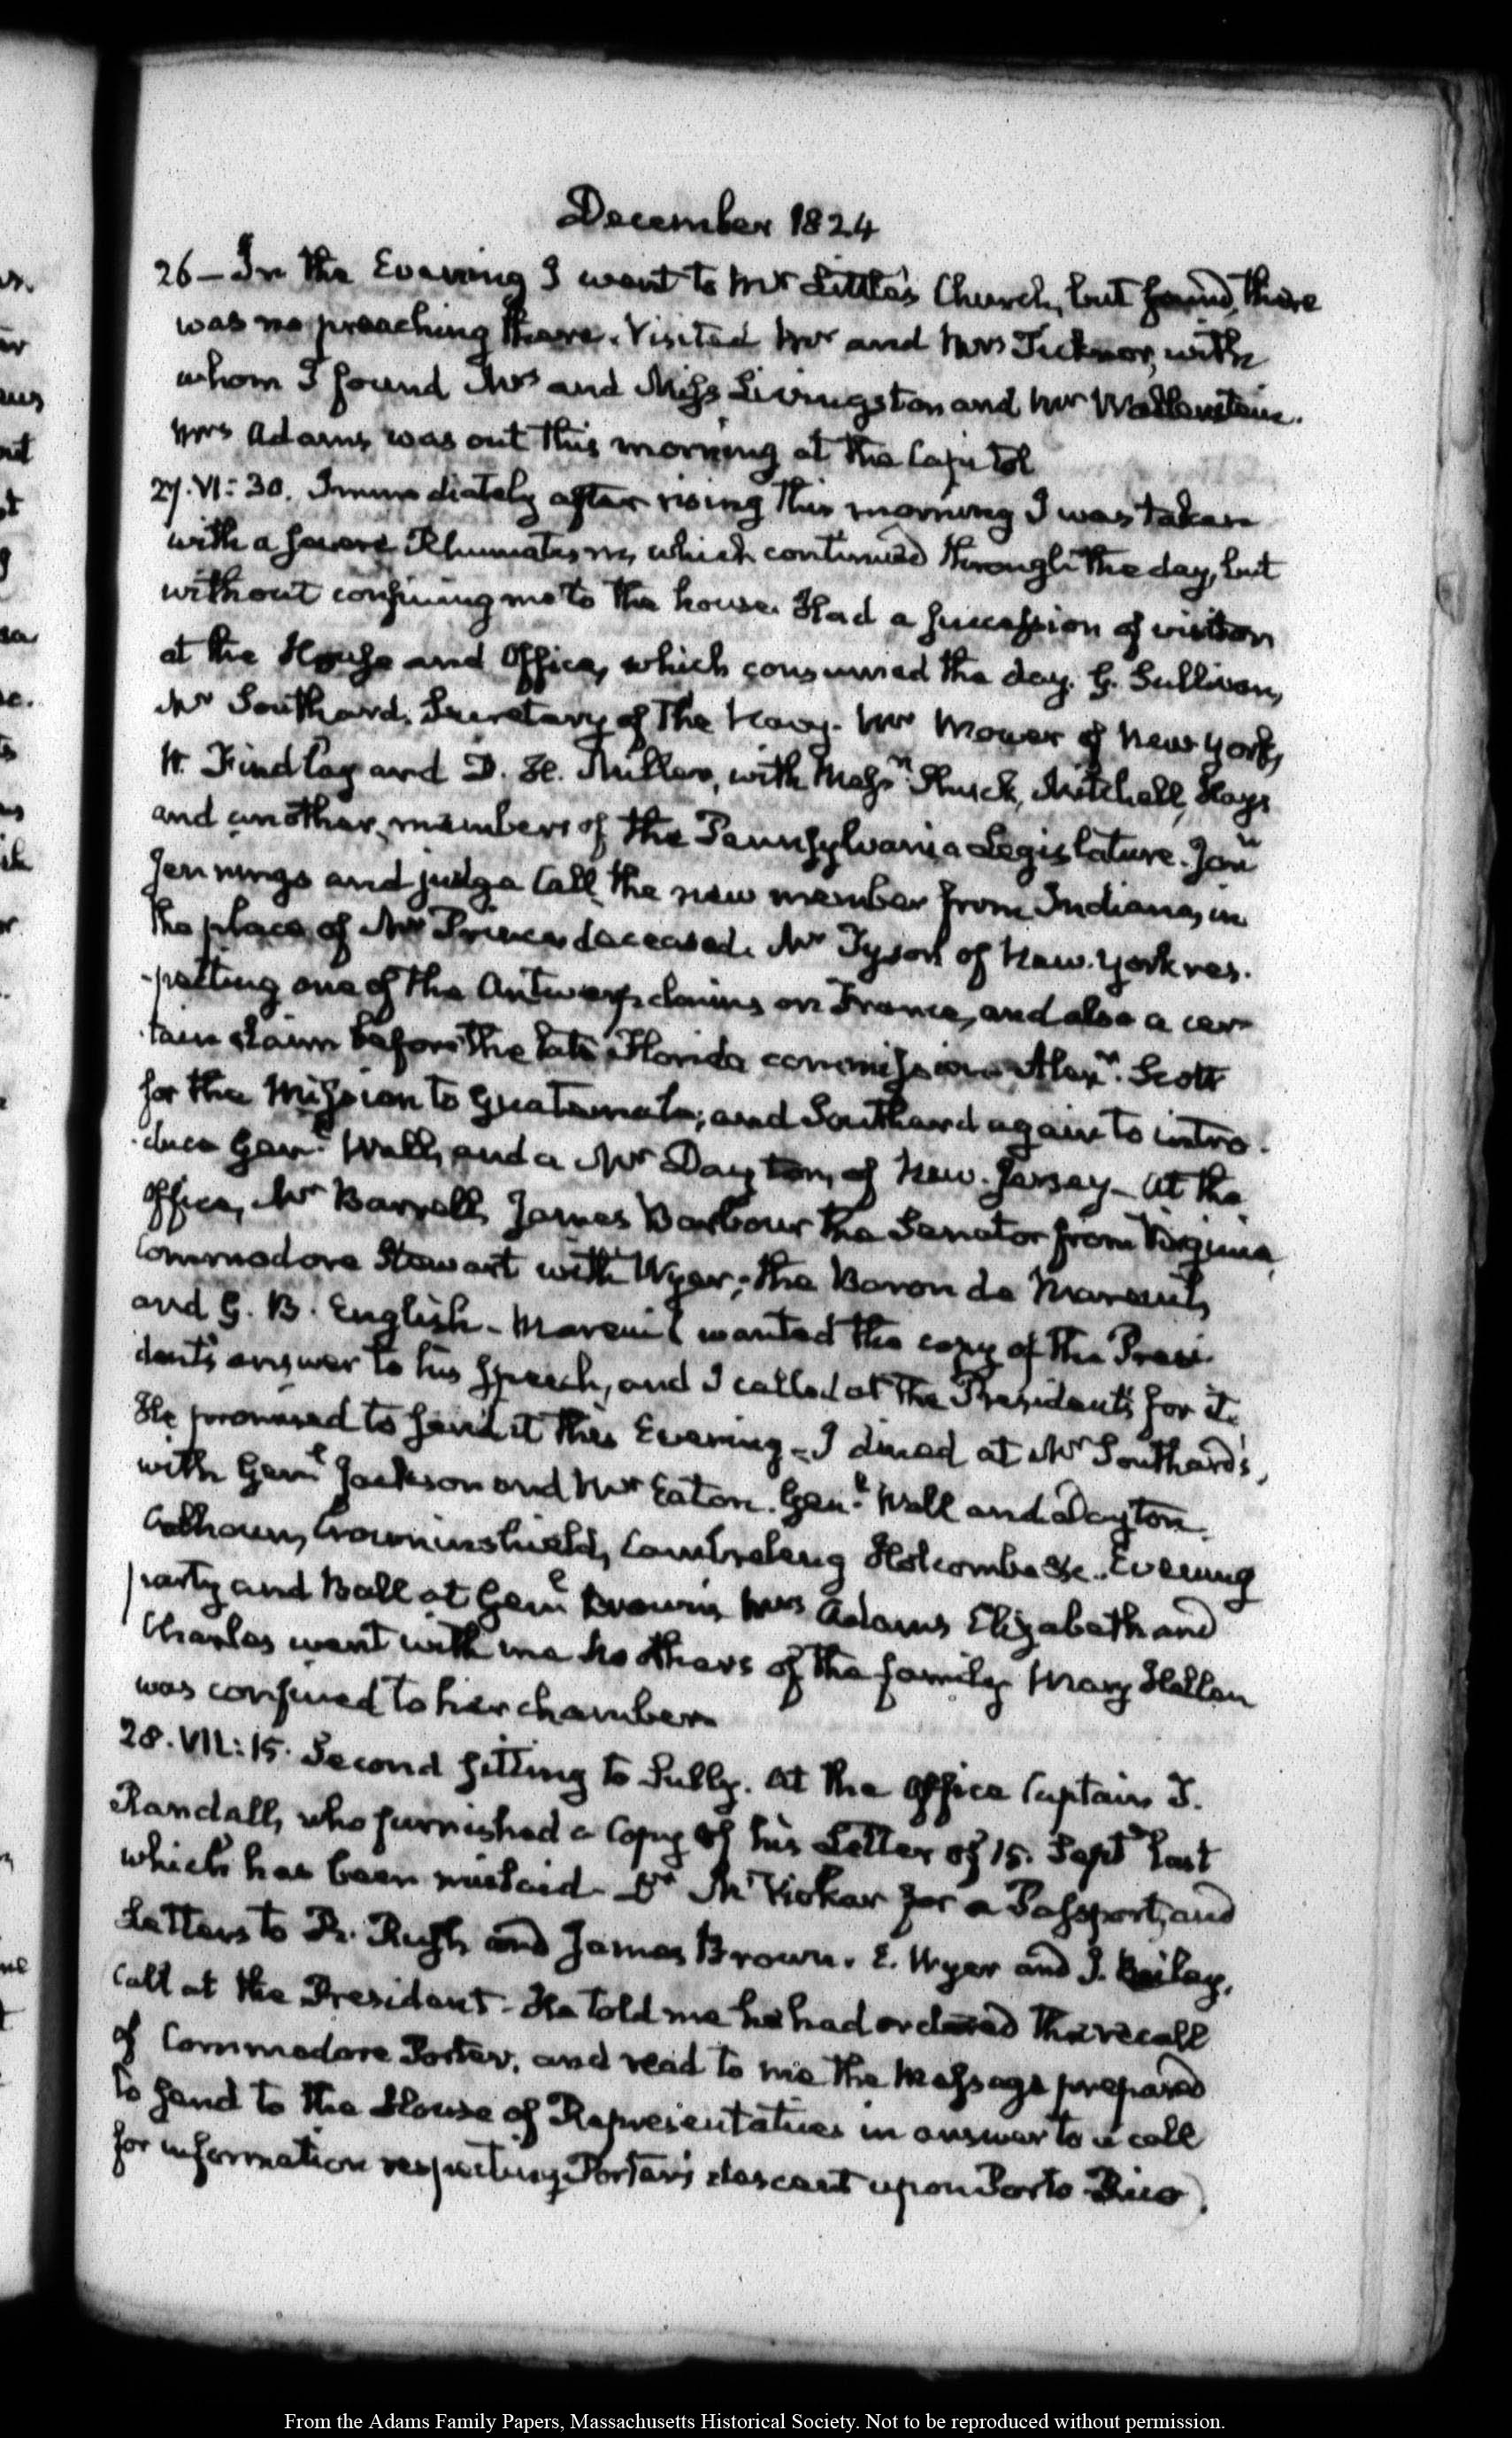 December 1824
26 – In the Evening I went to Mr Little's Church, but found, there
was no preaching there. Visited Mr and Mrs Ticknor, with
whom I found Mrs and Miss Livingston and Mr Wallenstein.
Mrs Adams was out this morning at the Capitol
27. VI: 30. Immediately after rising this morning I was taken
with a severe Rhumatism, which continued through the day, but
without confining me to the house. Had a succession of visitors
at the House and Office, which consumed the day. G. Sullivan,
Mr Southard, Secretary of the Navy. Mr Mower of New York,
W. Findlay and D. H. Miller, with Messrs. Mitchell, Hays
and another, members of the Pennsylvania Legislature. Jonn
Jennings and judge Call, the new member from Indiana, in
the place of Mr Prince deceased. Mr Tyson of New-York res-
-pecting one of the Antwerp claims on France, and also a cer-
-tain claim before the late Florida commission. Alexr. Scott
for the Mission to Guatemala; and Southard again to intro-
-duce Genl. Wall, and a Mr Dayton, of New-Jersey – At the
Office, Mr Barrell, James Barbour the Senator from Virginia,
Commodore Stewart with Wyer; the Baron de Mareuil,
and G. B. English – Mareuil wanted the copy of the Presi-
dent's answer to his speech, and I called at the President's for it.
He promised to send it this Evening – I dined at Mr Southard's,
with Genl Jackson and Mr Eaton. Genl. Wall and Dayton,
Calhoun, Crowninshield, Cambreleng Holcombe &c. Evening
party and Ball at Genl Brown's Mrs Adams Elizabeth and
Charles went with me no others of the family Mary Hellen
was confined to her chamber.
28. VII: 15. Second sitting to Sully. At the Office Captain J.
Randall, who furnished a Copy of his Letter of 15. Septr last
which has been mislaid. Dr McVickar for a Passport, and
Letters to R. Rush and James Brown. E. Wyer and J. Bailey.
Call at the President – He told me he had ordered the recall
of Commodore Porter, and read to me the Message prepared
to send to the House of Representatives in answer to a call
for information respecting Porter's descent upon Porto-Rico.
From the Adams Family Papers, Massachusetts Historical Society. Not to be reproduced without permission.